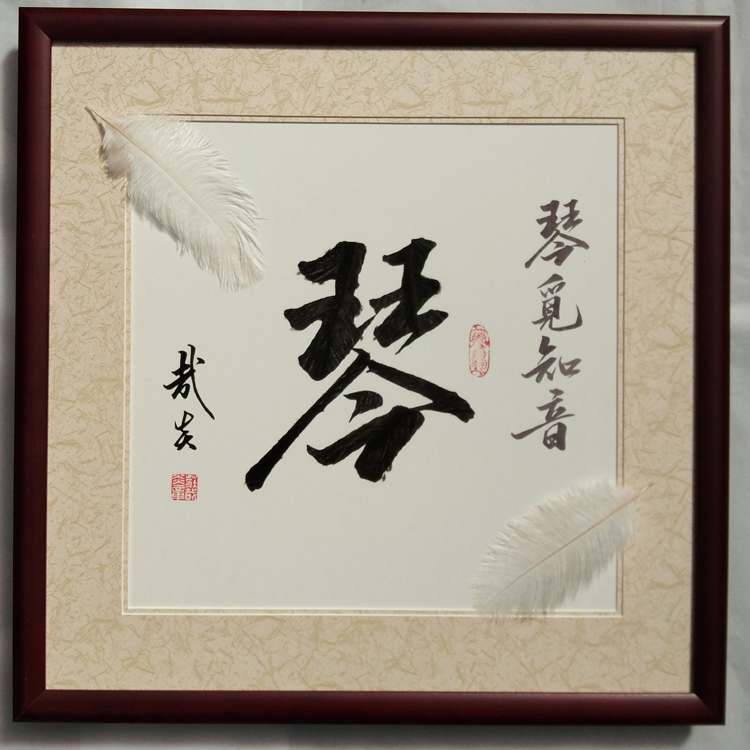 琴覓知音
琴
哉炎